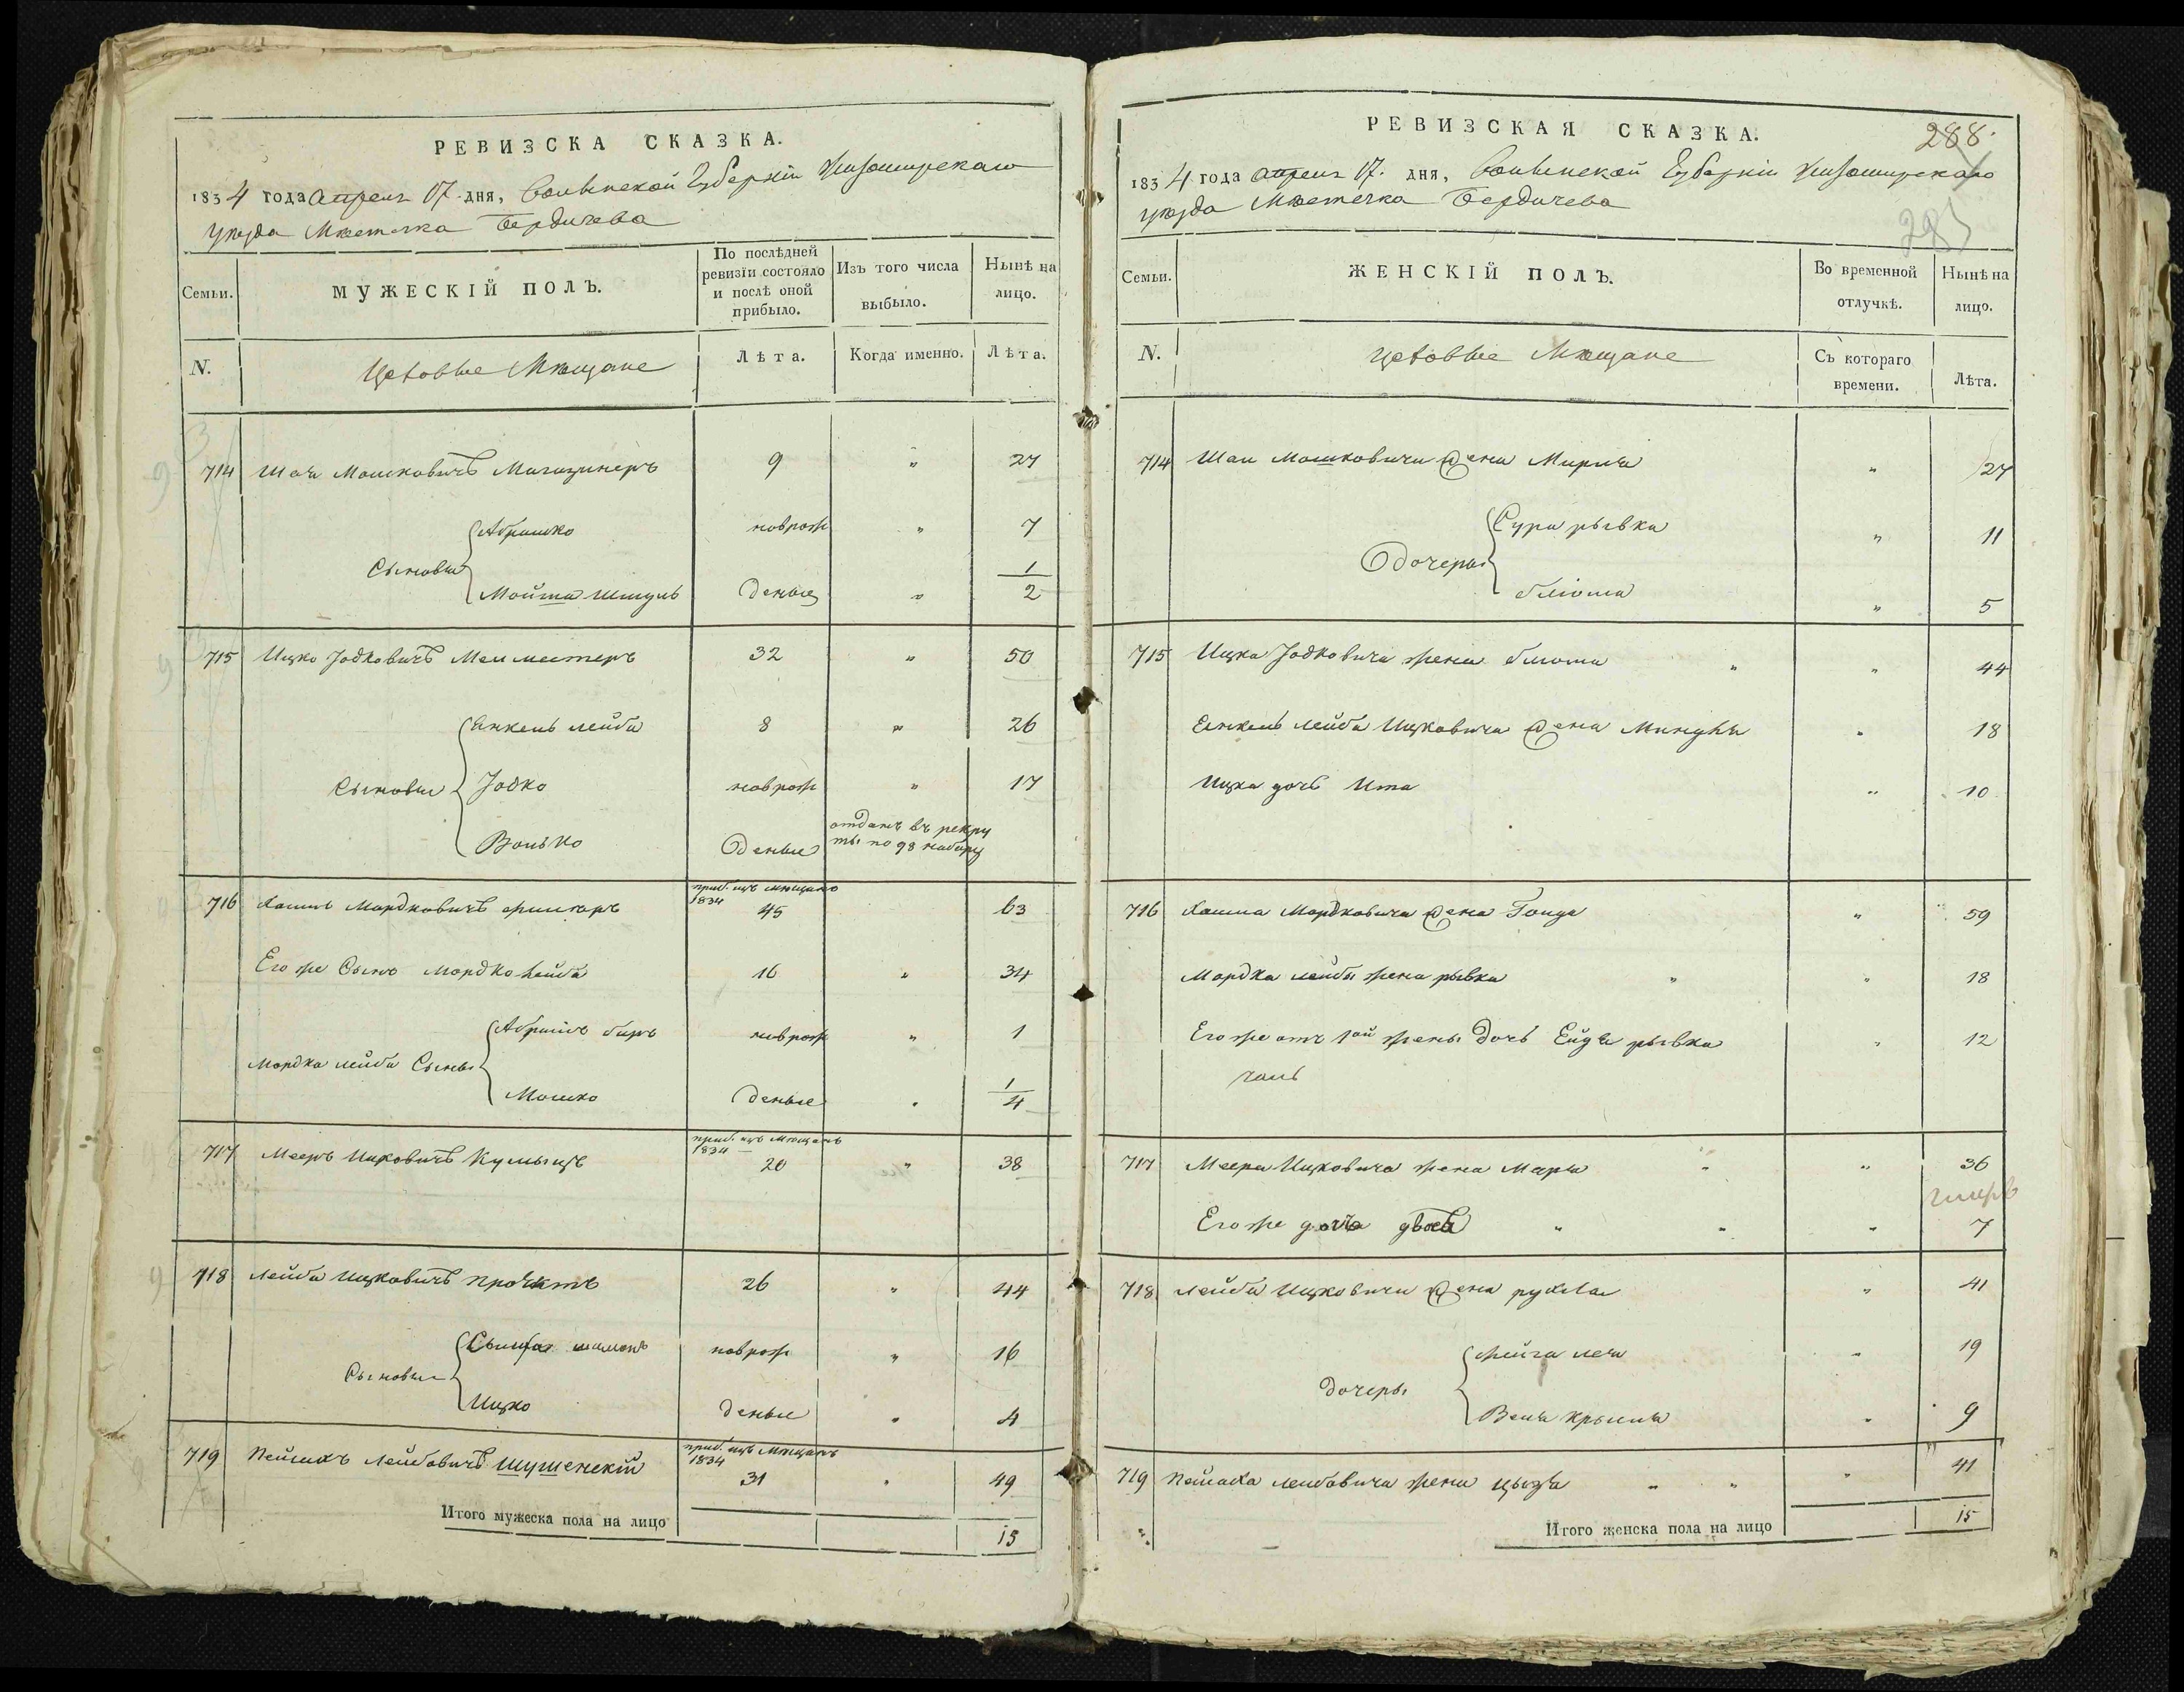 РЕВИЗСКА СКАЗКА.
1834 года апреля 17 дня, Волынской Губерніи Житомирскаго
уѣзда Мѣстечка Бердичева
Семьи.
МУЖЕСКІЙ ПОЛЪ.
По послѣдней ревизіи состояло и послѣ оной прибыло.
Изъ того числа выбыло.
Нынѣ на лицо.
N.
Цеховые Мѣщане
Лѣта.
Когда именно.
Лѣта.
714 Шая Мошковичъ Магазинеръ 9 " 27
Сыновья
Абрашко новрож " 7
Мойша Шмуль деные " 1/2
715 Ицко Іодковичъ 32 " 50
Сыновья
Янкель лейба 8 " 26
Іодко новрож " 17
Волько деные отданъ въ рекру
ты по 98 набору
716 Мордковичъ приб. изъ мѣщанъ
1834 45 63
Его же Сынъ Мордко лейба 16 " 34
Мордка лейбы Сыны
Абрамъ беръ новрож " 1
Мошко деные " 1/4
717 Мееръ Ицковичъ приб. изъ Мѣщанъ
1834 20 " 38
718 Лейба Ицковичъ 26 " 44
Сыновья
новрож " 16
Ицко деные " 4
719 Пейсахъ Лейбовичъ Шушенскій приб. изъ Мѣщанъ
1834 31 " 49
Итого мужеска пола на лицо 15
РЕВИЗСКАЯ СКАЗКА.
288.
1834 года апреля 17. дня, Волынской Губерніи Житомирскаго
уѣзда Мѣстечка Бердичева
Семьи.
ЖЕНСКІЙ ПОЛЪ.
Во временной отлучкѣ.
Нынѣ на лицо.
N.
Цеховые Мѣщане
Съ котораго времени.
Лѣта.
714 Шаи Мошковича жена Мирля " 27
Дочеры
Сура рывка " 11
блюма " 5
715 Ицка Іодковича жена блюма " " 44
Янкель лейба Ицковича жена " 18
Ицка дочь Ита " 10
716 Мордковича жена " 59
Мордка лейбы жена рывка " " 18
Его же отъ 1ой жены дочь Ейдя рывка " 12
717 Меера Ицковича жена Маря " " 36
Его же дочь " " " 7
718 Лейбы Ицковича жена рухля " 41
Дочеры
лея " 19
" 9
719 Пейсаха лейбовича жена " " " 41
Итого женска пола на лицо 15